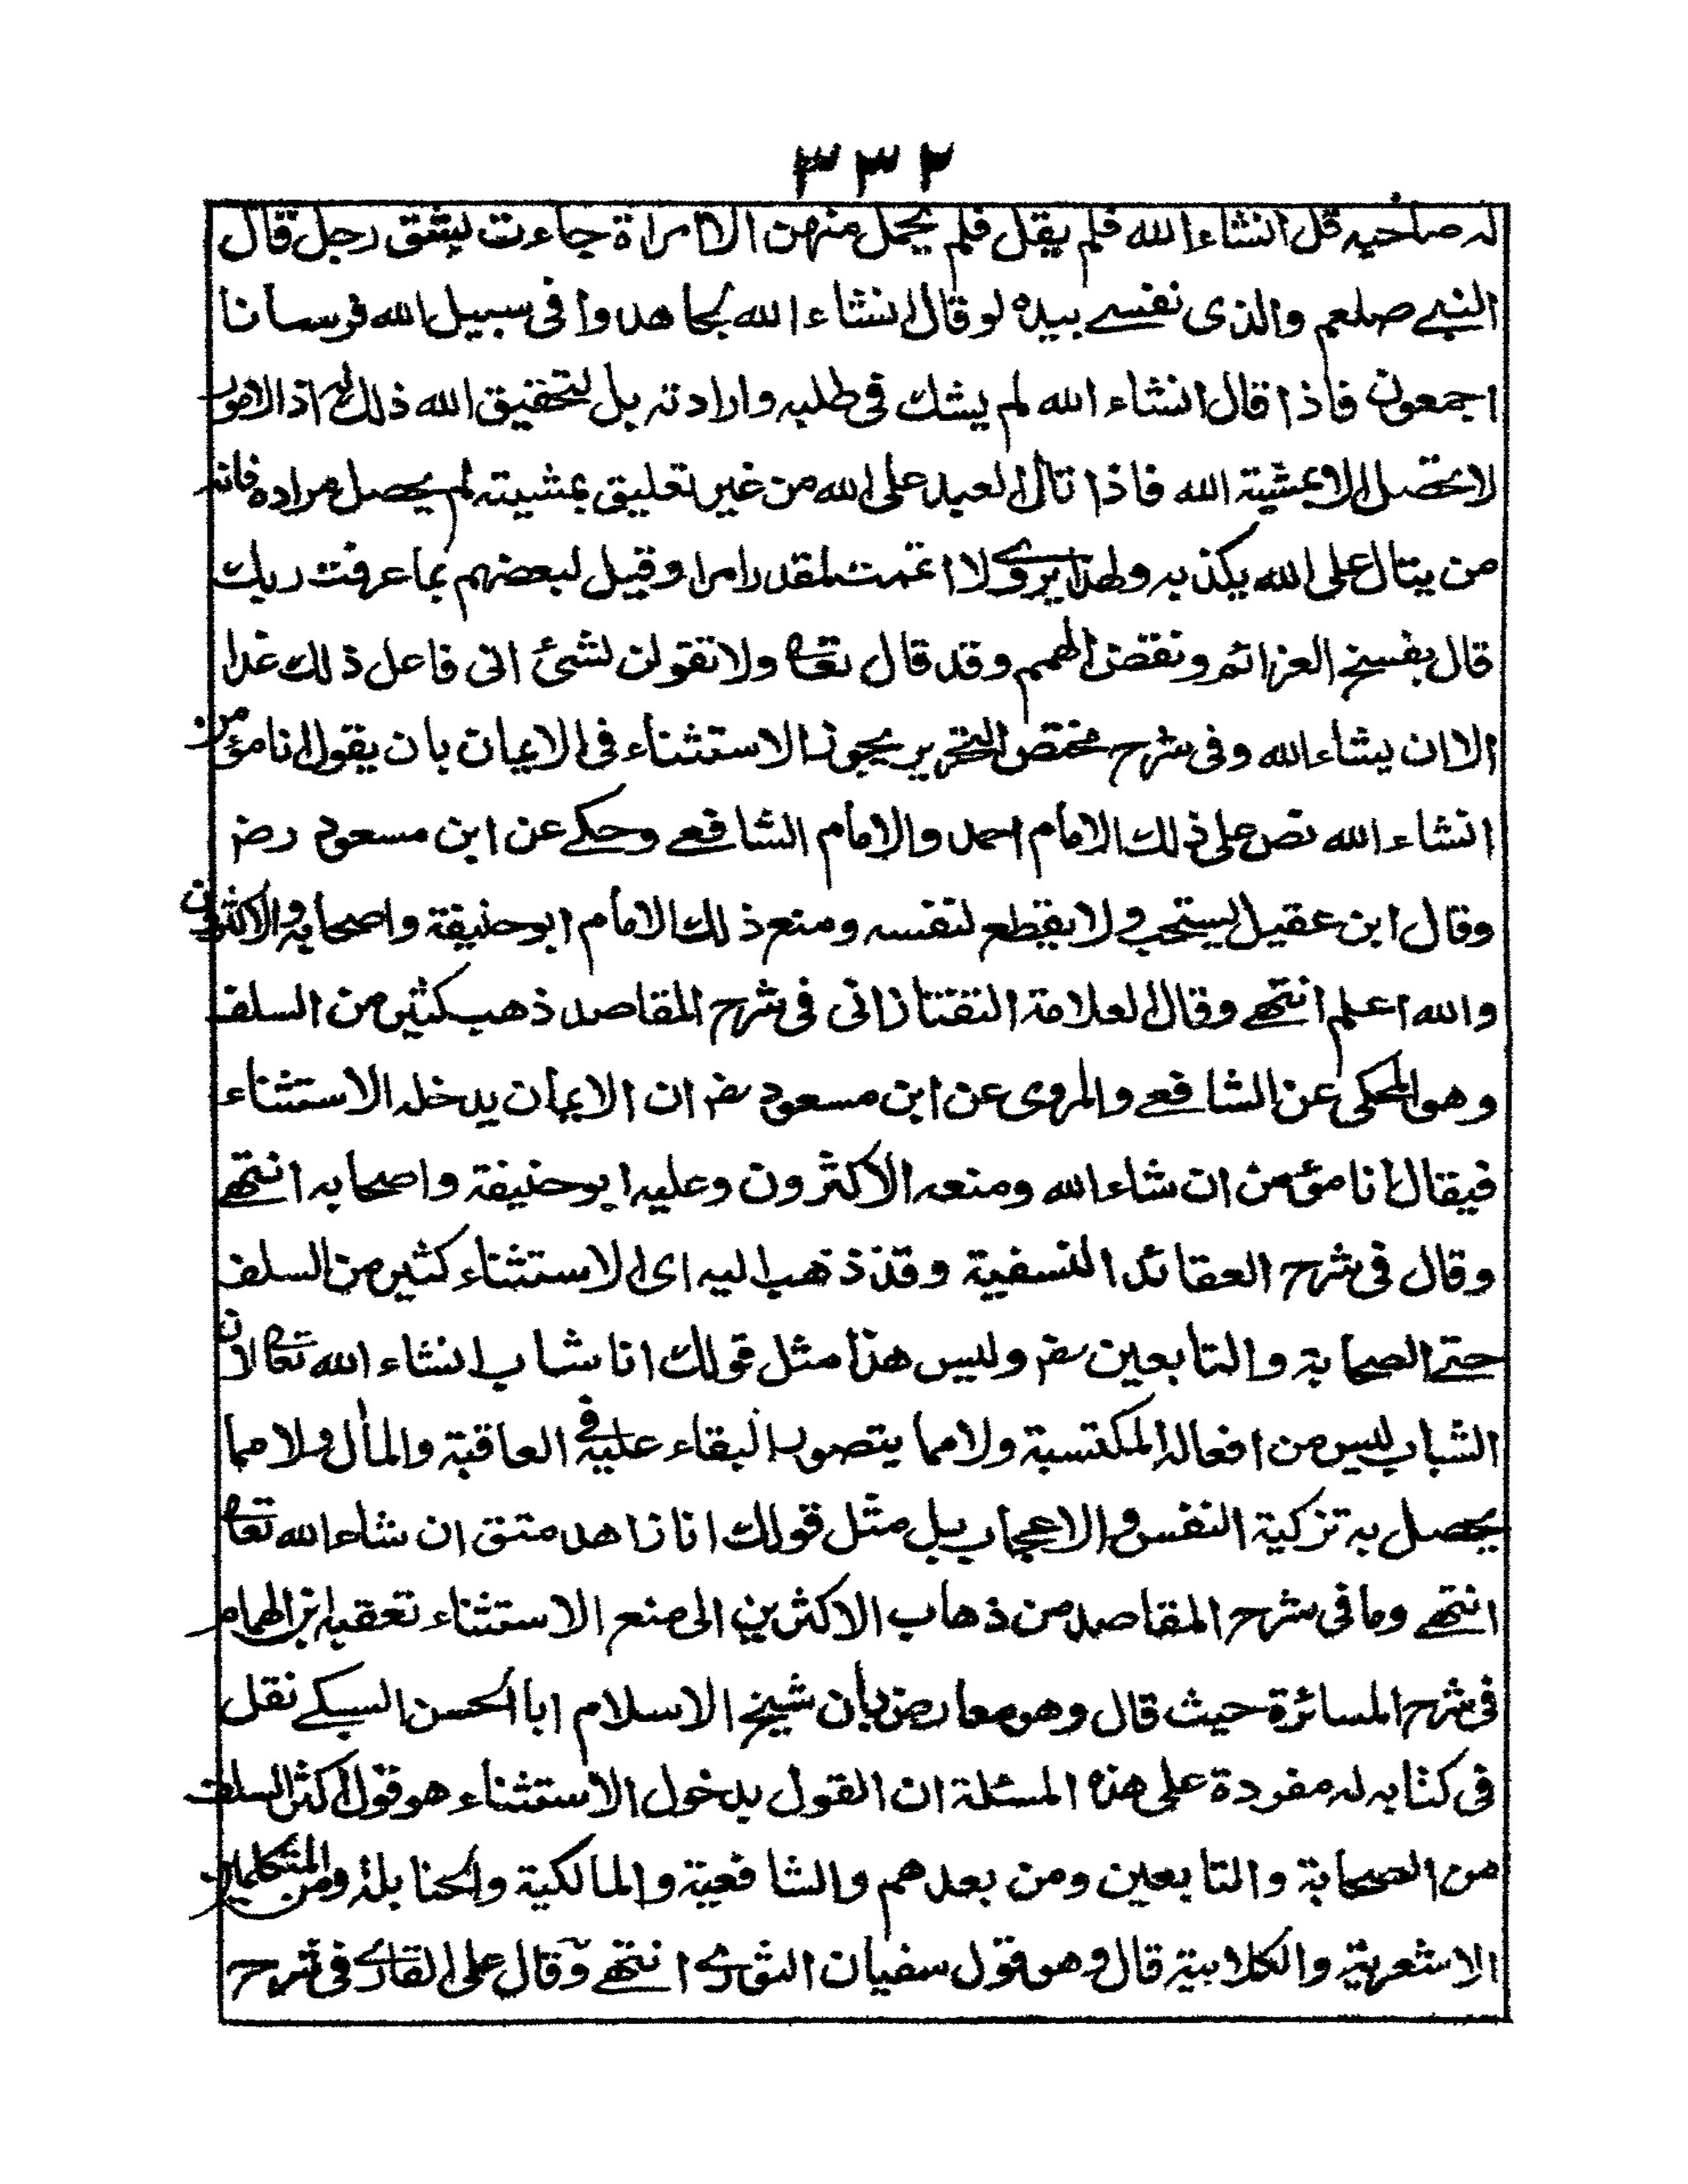 ٣٣٢
له صاحبه قل انشاء الله فلم يقل فلم يحمل منهن الا امراة جاءت بشق رجل قال
النبے صلعم والذى نفسے بيده لو قال انشاء الله لجاهدوا فى سبيل الله فرسانا
اجمعون فاذا قال انشاء الله لم يشك فى طلبه وارادته بل لتحقيق الله ذلك له اذ الامور
لا تحصل الا بمشية الله فاذا تالى العبد على الله من غير تعليق بمشيته لم يحصل مراده فانه
من يتال على الله يكذبه ولهذا يروے لا اتممت لمقدر امرا وقيل لبعضهم بما عرفت ربك
قال بفسخ العزائم ونقض الهمم وقد قال تعا ولا تقولن لشئ انى فاعل ذلك غدا
الا ان يشاء الله وفى شرح مختصر التحرير يجوز الاستثناء فى الايمان بان يقول انا مؤمن
انشاء الله نص على ذلك الامام احمد والامام الشافعے وحكے عن ابن مسعود رضـ
وقال ابن عقيل يستحب ولا يقطع لنفسه ومنع ذلك الامام ابو حنيفة واصحابه والاكثرون
والله اعلم انتهے وقال العلامة التفتازانى فى شرح المقاصد ذهب كثير من السلف
وهو المحكى عن الشافعے والمروى عن ابن مسعود رضـ ان الايمان يدخله الاستثناء
فيقال انا مؤمن ان شاء الله ومنعه الاكثرون وعليه ابو حنيفة واصحابه انتهے
وقال فى شرح العقائد النسفية وقد ذهب اليه اى الاستثناء كثير من السلف
حتے الصحابة والتابعين رضـ وليس هذا مثل قولك انا شاب انشاء الله تعا لان
الشباب ليس من افعاله المكتسبة ولا مما يتصور البقاء عليه فى العاقبة والمأل ولا مما
يحصل به تزكية النفس والاعجاب بل مثل قولك انا زاهد متق ان شاء الله تعا
انتهے وما فى شرح المقاصد من ذهاب الاكثرين الى منع الاستثناء تعقبه ابن الهمام
فى شرح المسائرة حيث قال وهو معارض بأن شيخ الاسلام ابا الحسن السبكے نقل
فى كتابه له مفردة على هذه المسئلة ان القول بدخول الاستثناء هو قول اكثر السلف
من الصحابة والتابعين ومن بعدهم والشافعية والمالكية والحنابلة ومن المتكلمين
الاشعرية والكلابية قال وهو قول سفيان الثورے انتهے وقال على القارے فى شرح